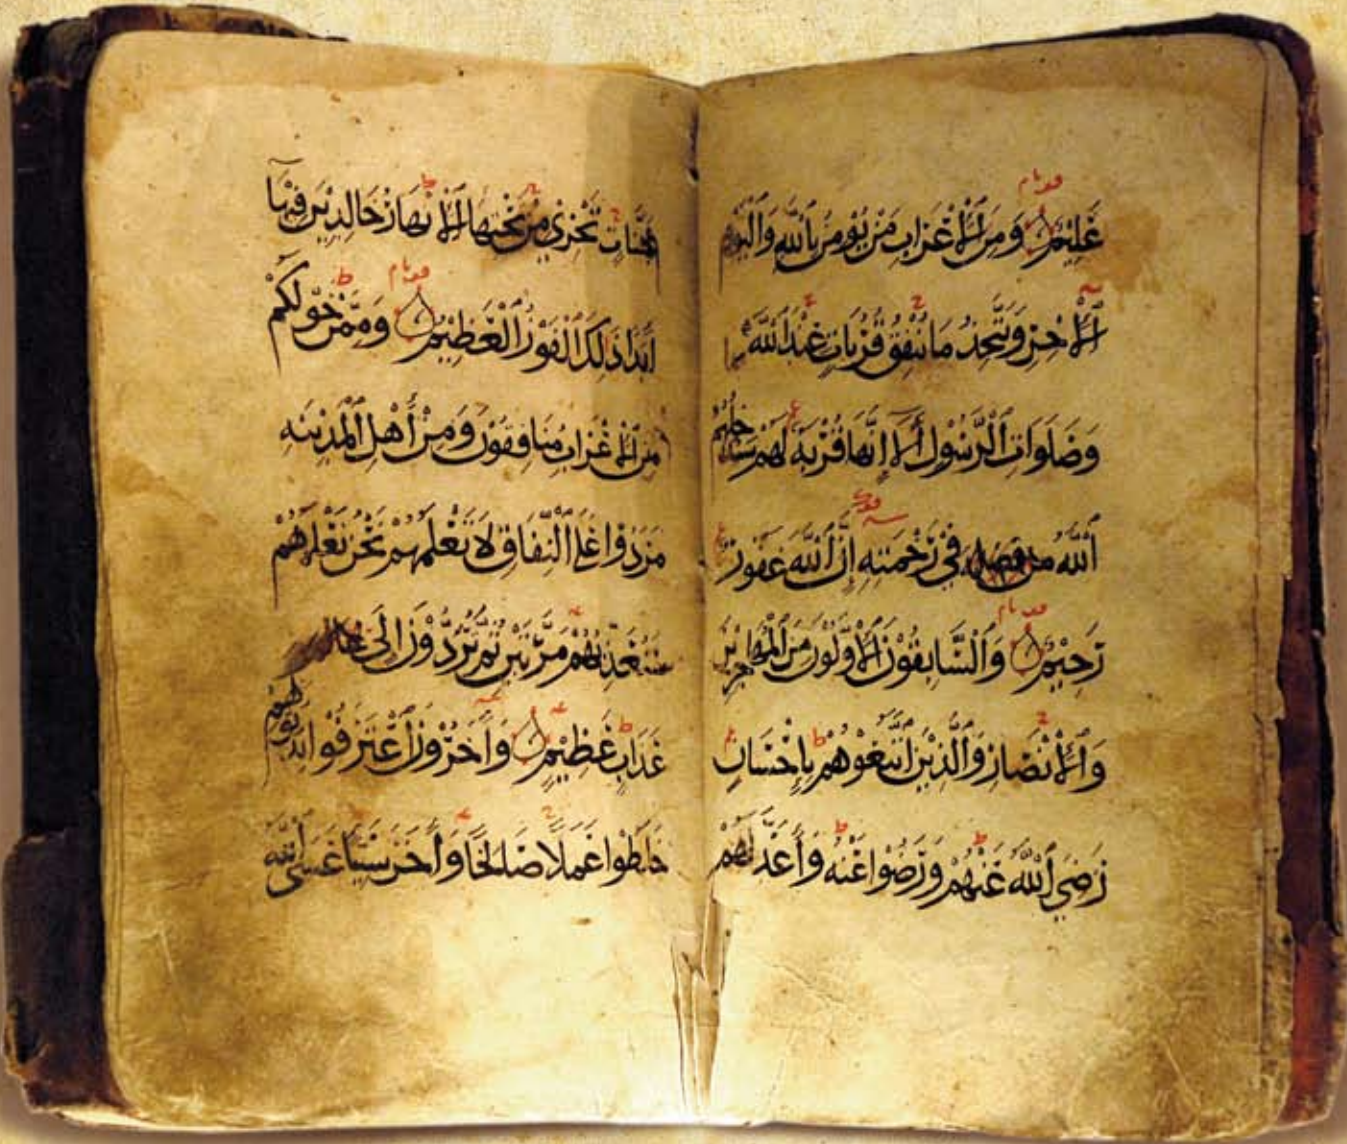 عَلِيْمٌ وَمِنَ الْأَعْرَابِ مَنْ يُؤْمِنُ بِاللّٰهِ وَالْيَوْمِ
الْآخِرِ وَيَتَّخِذُ مَا يُنْفِقُ قُرُبَاتٍ عِنْدَ اللّٰهِ
وَصَلَوَاتِ الرَّسُوْلِ أَلَا إِنَّهَا قُرْبَةٌ لَهُمْ سَيُدْخِلُهُمُ
اللّٰهُ من فضله فِي رَحْمَتِهِ إِنَّ اللّٰهَ غَفُوْرٌ
رَحِيْمٌ وَالسَّابِقُوْنَ الْأَوَّلُوْنَ مِنَ الْمُهَاجِرِيْنَ
وَالْأَنْصَارِ وَالَّذِيْنَ اتَّبَعُوْهُمْ بِإِحْسَانٍ
رَضِيَ اللّٰهُ عَنْهُمْ وَرَضُوْا عَنْهُ وَأَعَدَّ لَهُمْ
جَنَّاتٍ تَجْرِيْ مِنْ تَحْتِهَا الْأَنْهَارُ خَالِدِيْنَ فِيْهَا
أَبَدًا ذَلِكَ الْفَوْزُ الْعَظِيْمُ وَمِمَّنْ حَوْلَكُمْ
مِنَ الْأَعْرَابِ مُنَافِقُوْنَ وَمِنْ أَهْلِ الْمَدِيْنَةِ
مَرَدُوْا عَلَى النِّفَاقِ لَا تَعْلَمُهُمْ نَحْنُ نَعْلَمُهُمْ
سَنُعَذِّبُهُمْ مَرَّتَيْنِ ثُمَّ يُرَدُّوْنَ إِلَى
عَذَابٍ عَظِيْمٍ وَآخَرُوْنَ اعْتَرَفُوْا بِذُنُوْبِهِمْ
خَلَطُوْا عَمَلًا صَالِحًا وَآخَرَ سَيِّئًا عَسَى اللّٰهُ